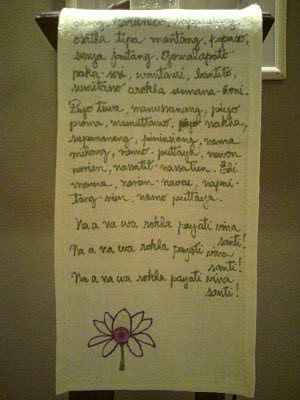 osatha tipa mantang, p.paso,
surya jantang. Oomalapato
paka-sesi, wantawi, bantito,
sumetaso arokha sumana-honi.
Piyo tewa, manussanang, piyo
proma, mamuttamo, piyo nakha,
supananang, pininsiang, nama
mihang, namo-puttaya, navon
navien, nassatit-nassatien. Ehi
mama, navon-navae, napai-
tang-vien, namo puttaya.
Na a na wa rokha payati vina
santi!
Na a na wa rokha payati vina
santi!
Na a na wa rokha payati vina
santi!